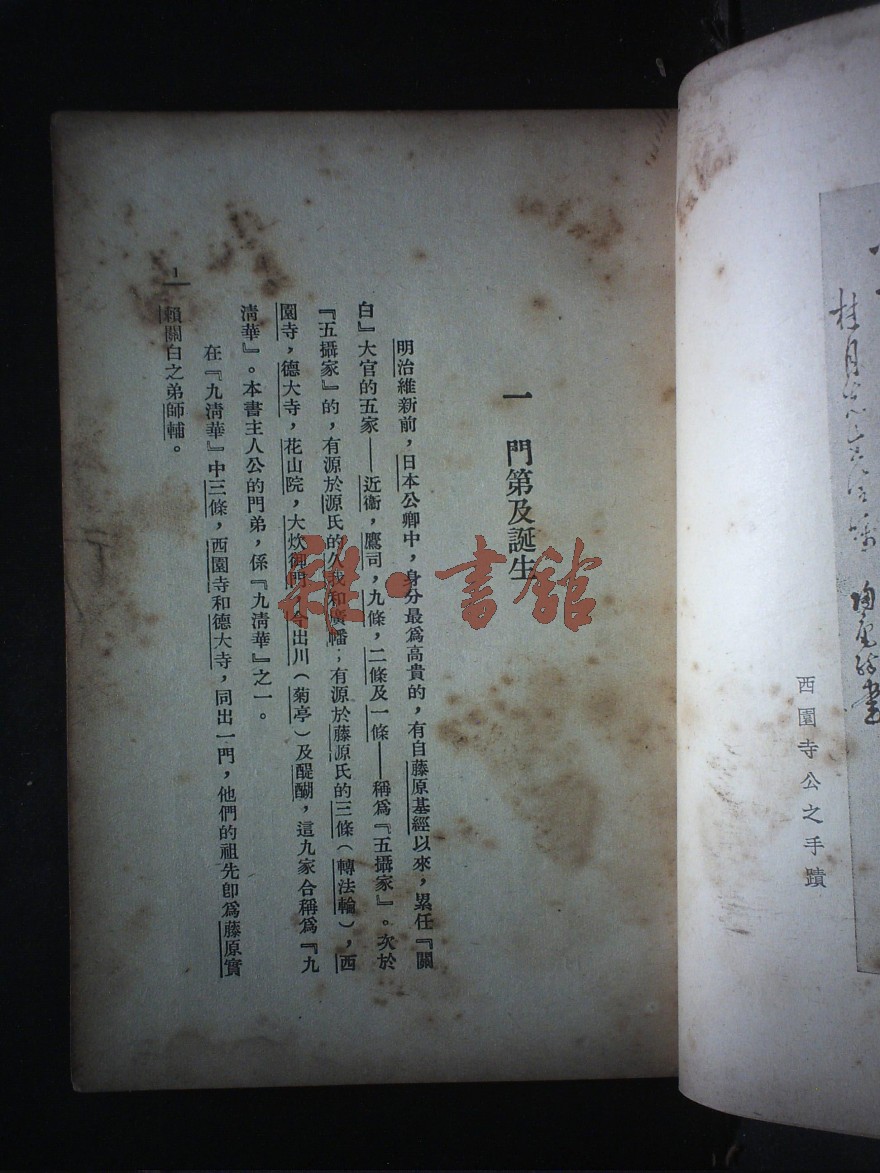 西園寺公之手蹟
一 門第及誕生
明治維新前，日本公卿中，身分最爲高貴的，有自藤原基經以來，累任『關
白』大官的五家——近衞，鷹司，九條，二條及一條——稱爲『五攝家』。次於
『五攝家』的，有源於源氏的久我和廣幡；有源於藤原氏的三條（轉法輪），西
園寺，德大寺，花山院，大炊御門，今出川（菊亭）及醍醐，這九家合稱爲『九
淸華』。本書主人公的門弟，係『九淸華』之一。
在『九淸華』中三條，西園寺和德大寺，同出一門，他們的祖先卽爲藤原實
賴關白之弟師輔。
1
雜·書館